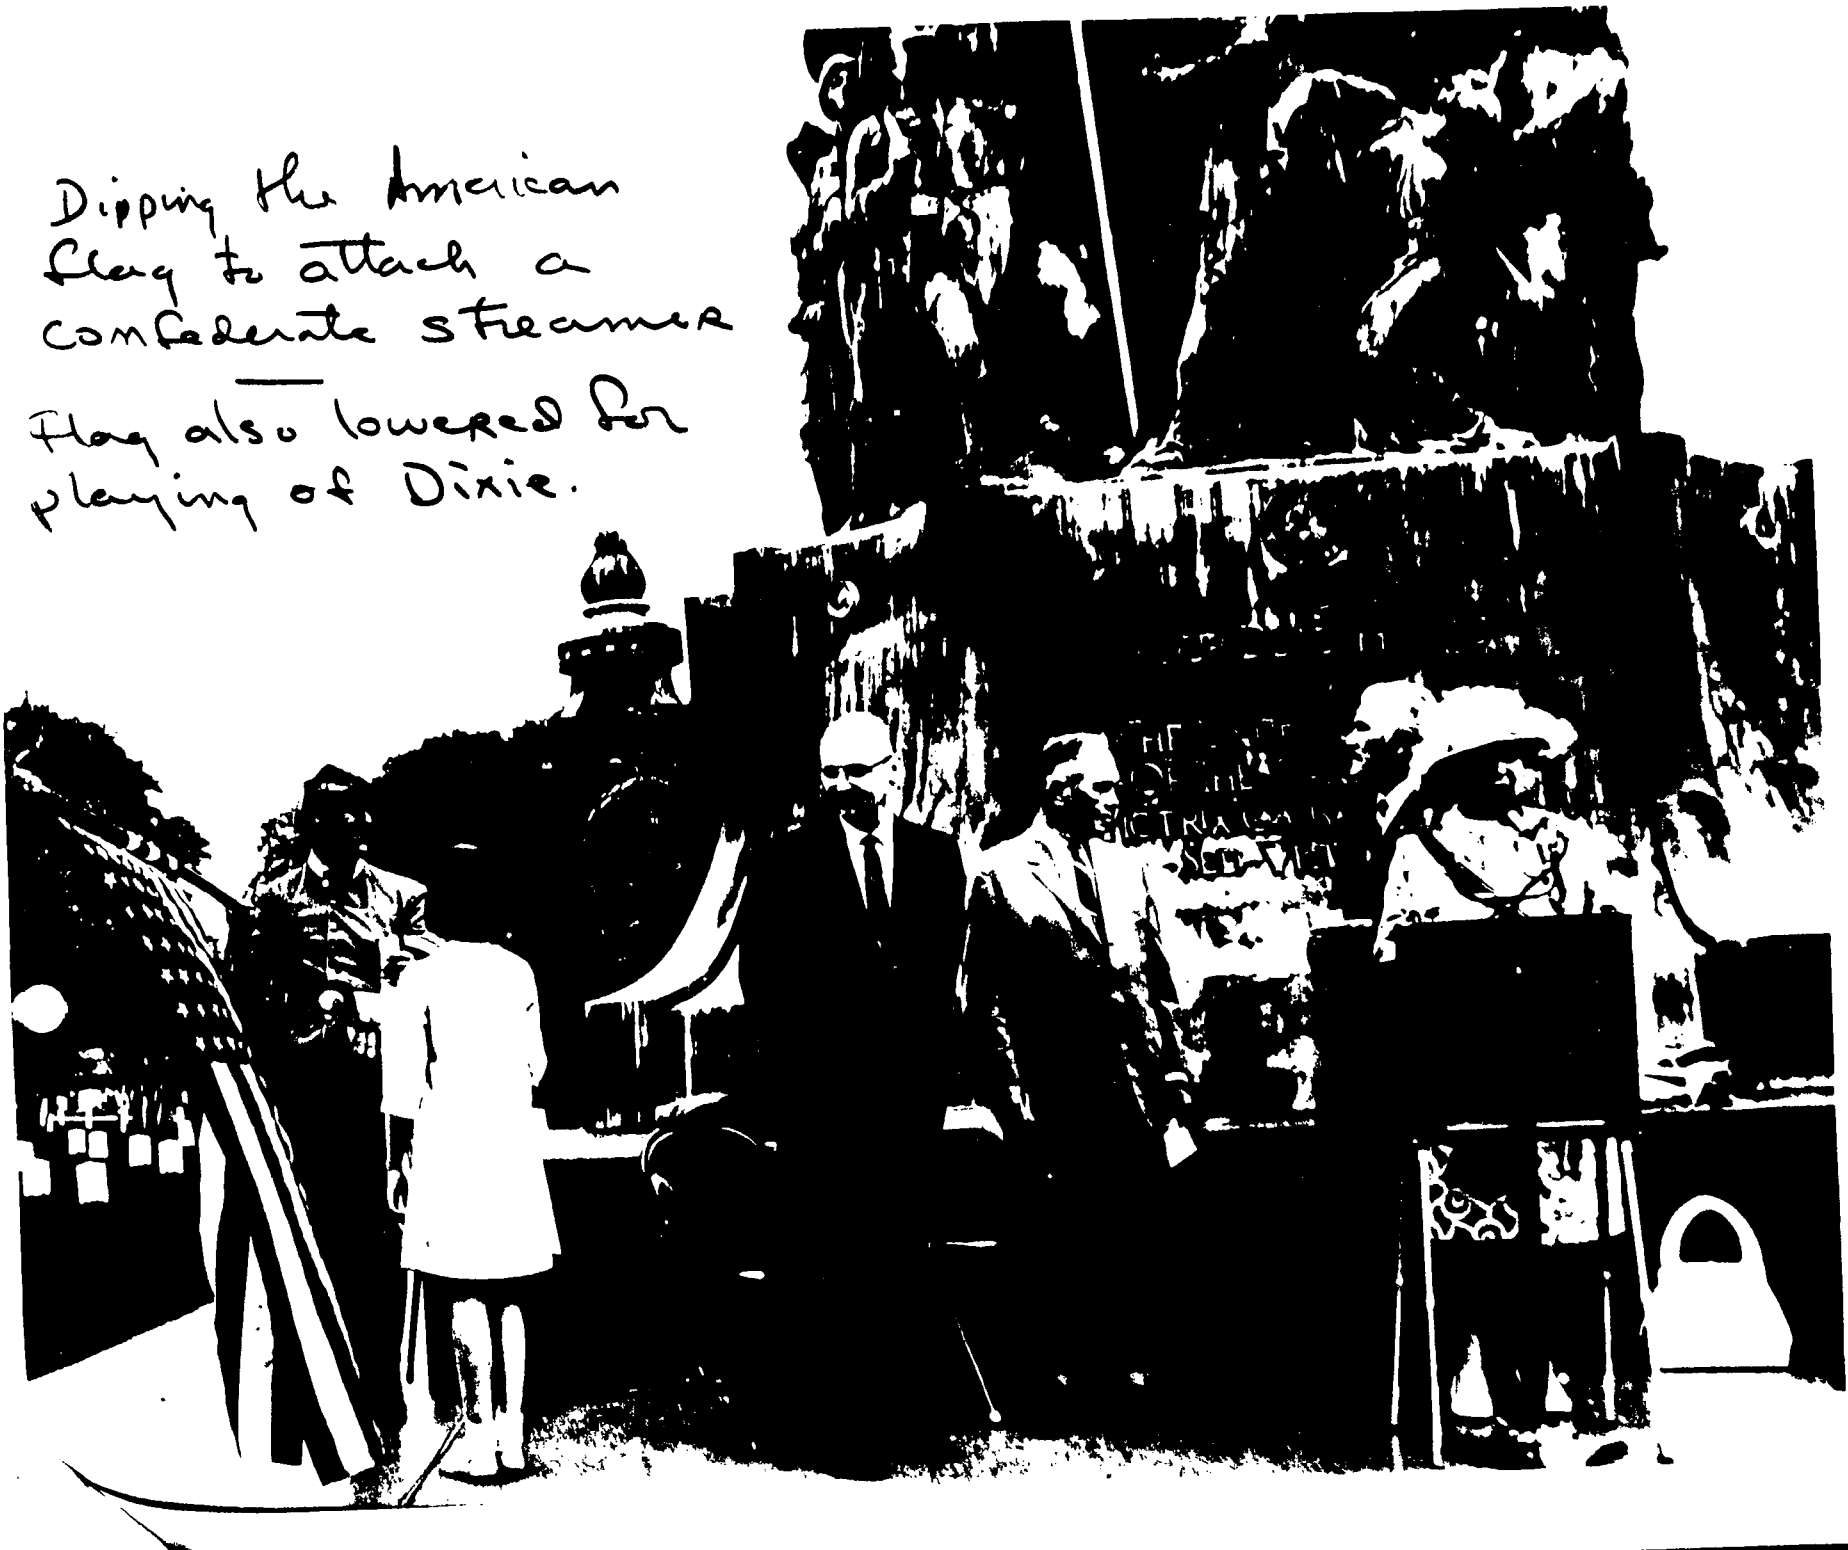 Dipping the American
flag to attach a
confederate streamer
Flag also lowered for
playing of Dixie.